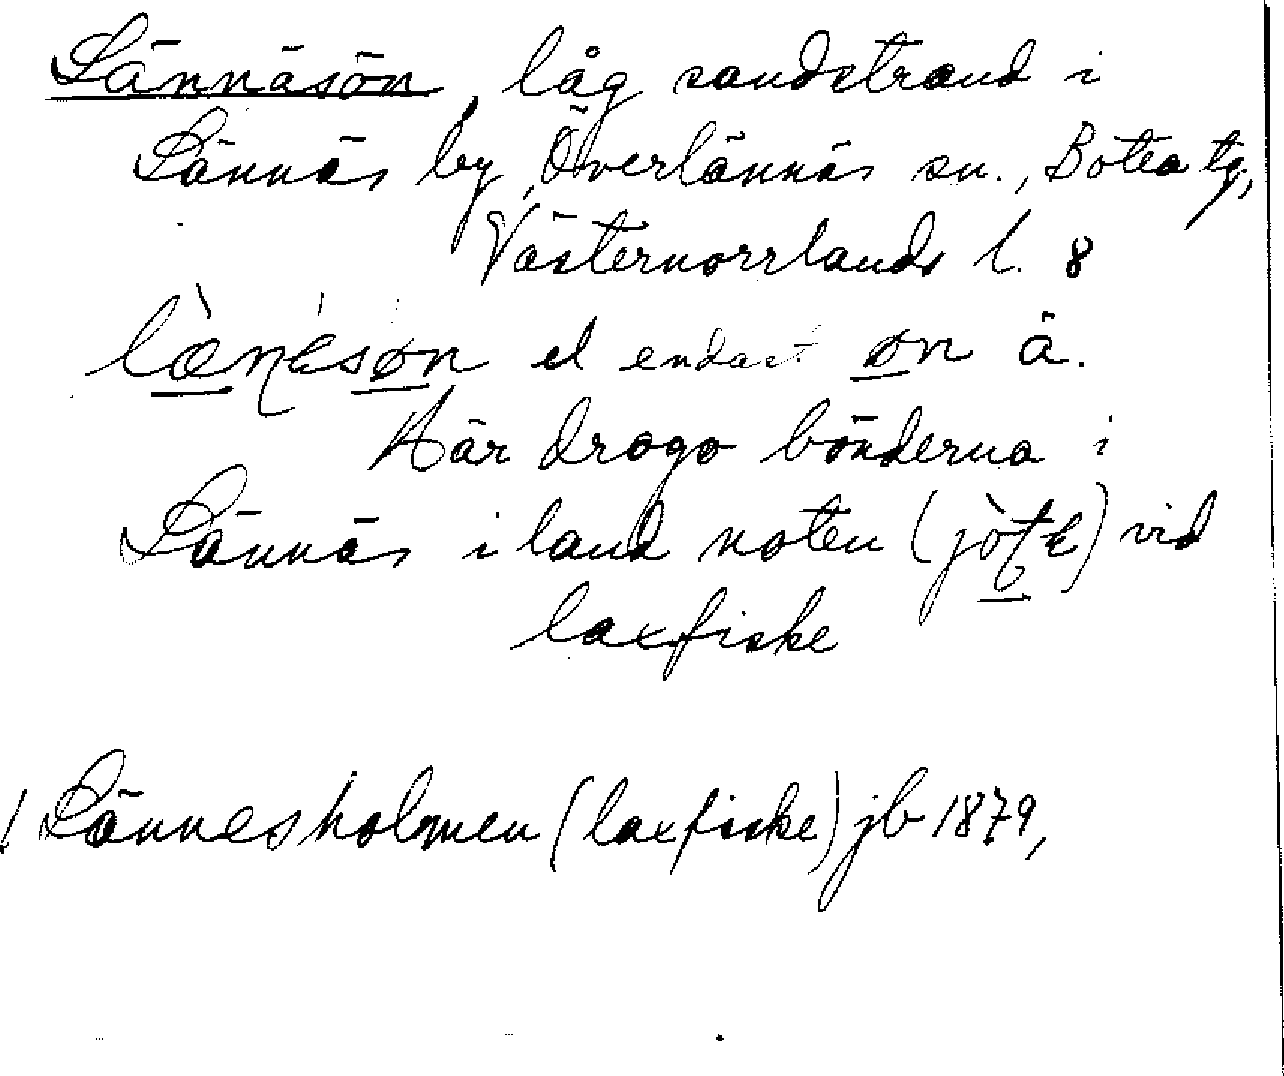 Lännäsön, låg sandstrand i
Lännäs by, Överlännäs sn., Boteå tg,
Västernorrlands l. 8
lænesøn el endast øn ä.
Här drogo bönderna i
Lännäs i land noten (jòte) vid
laxfiske
Lännesholmen (laxfiske) jb 1879,